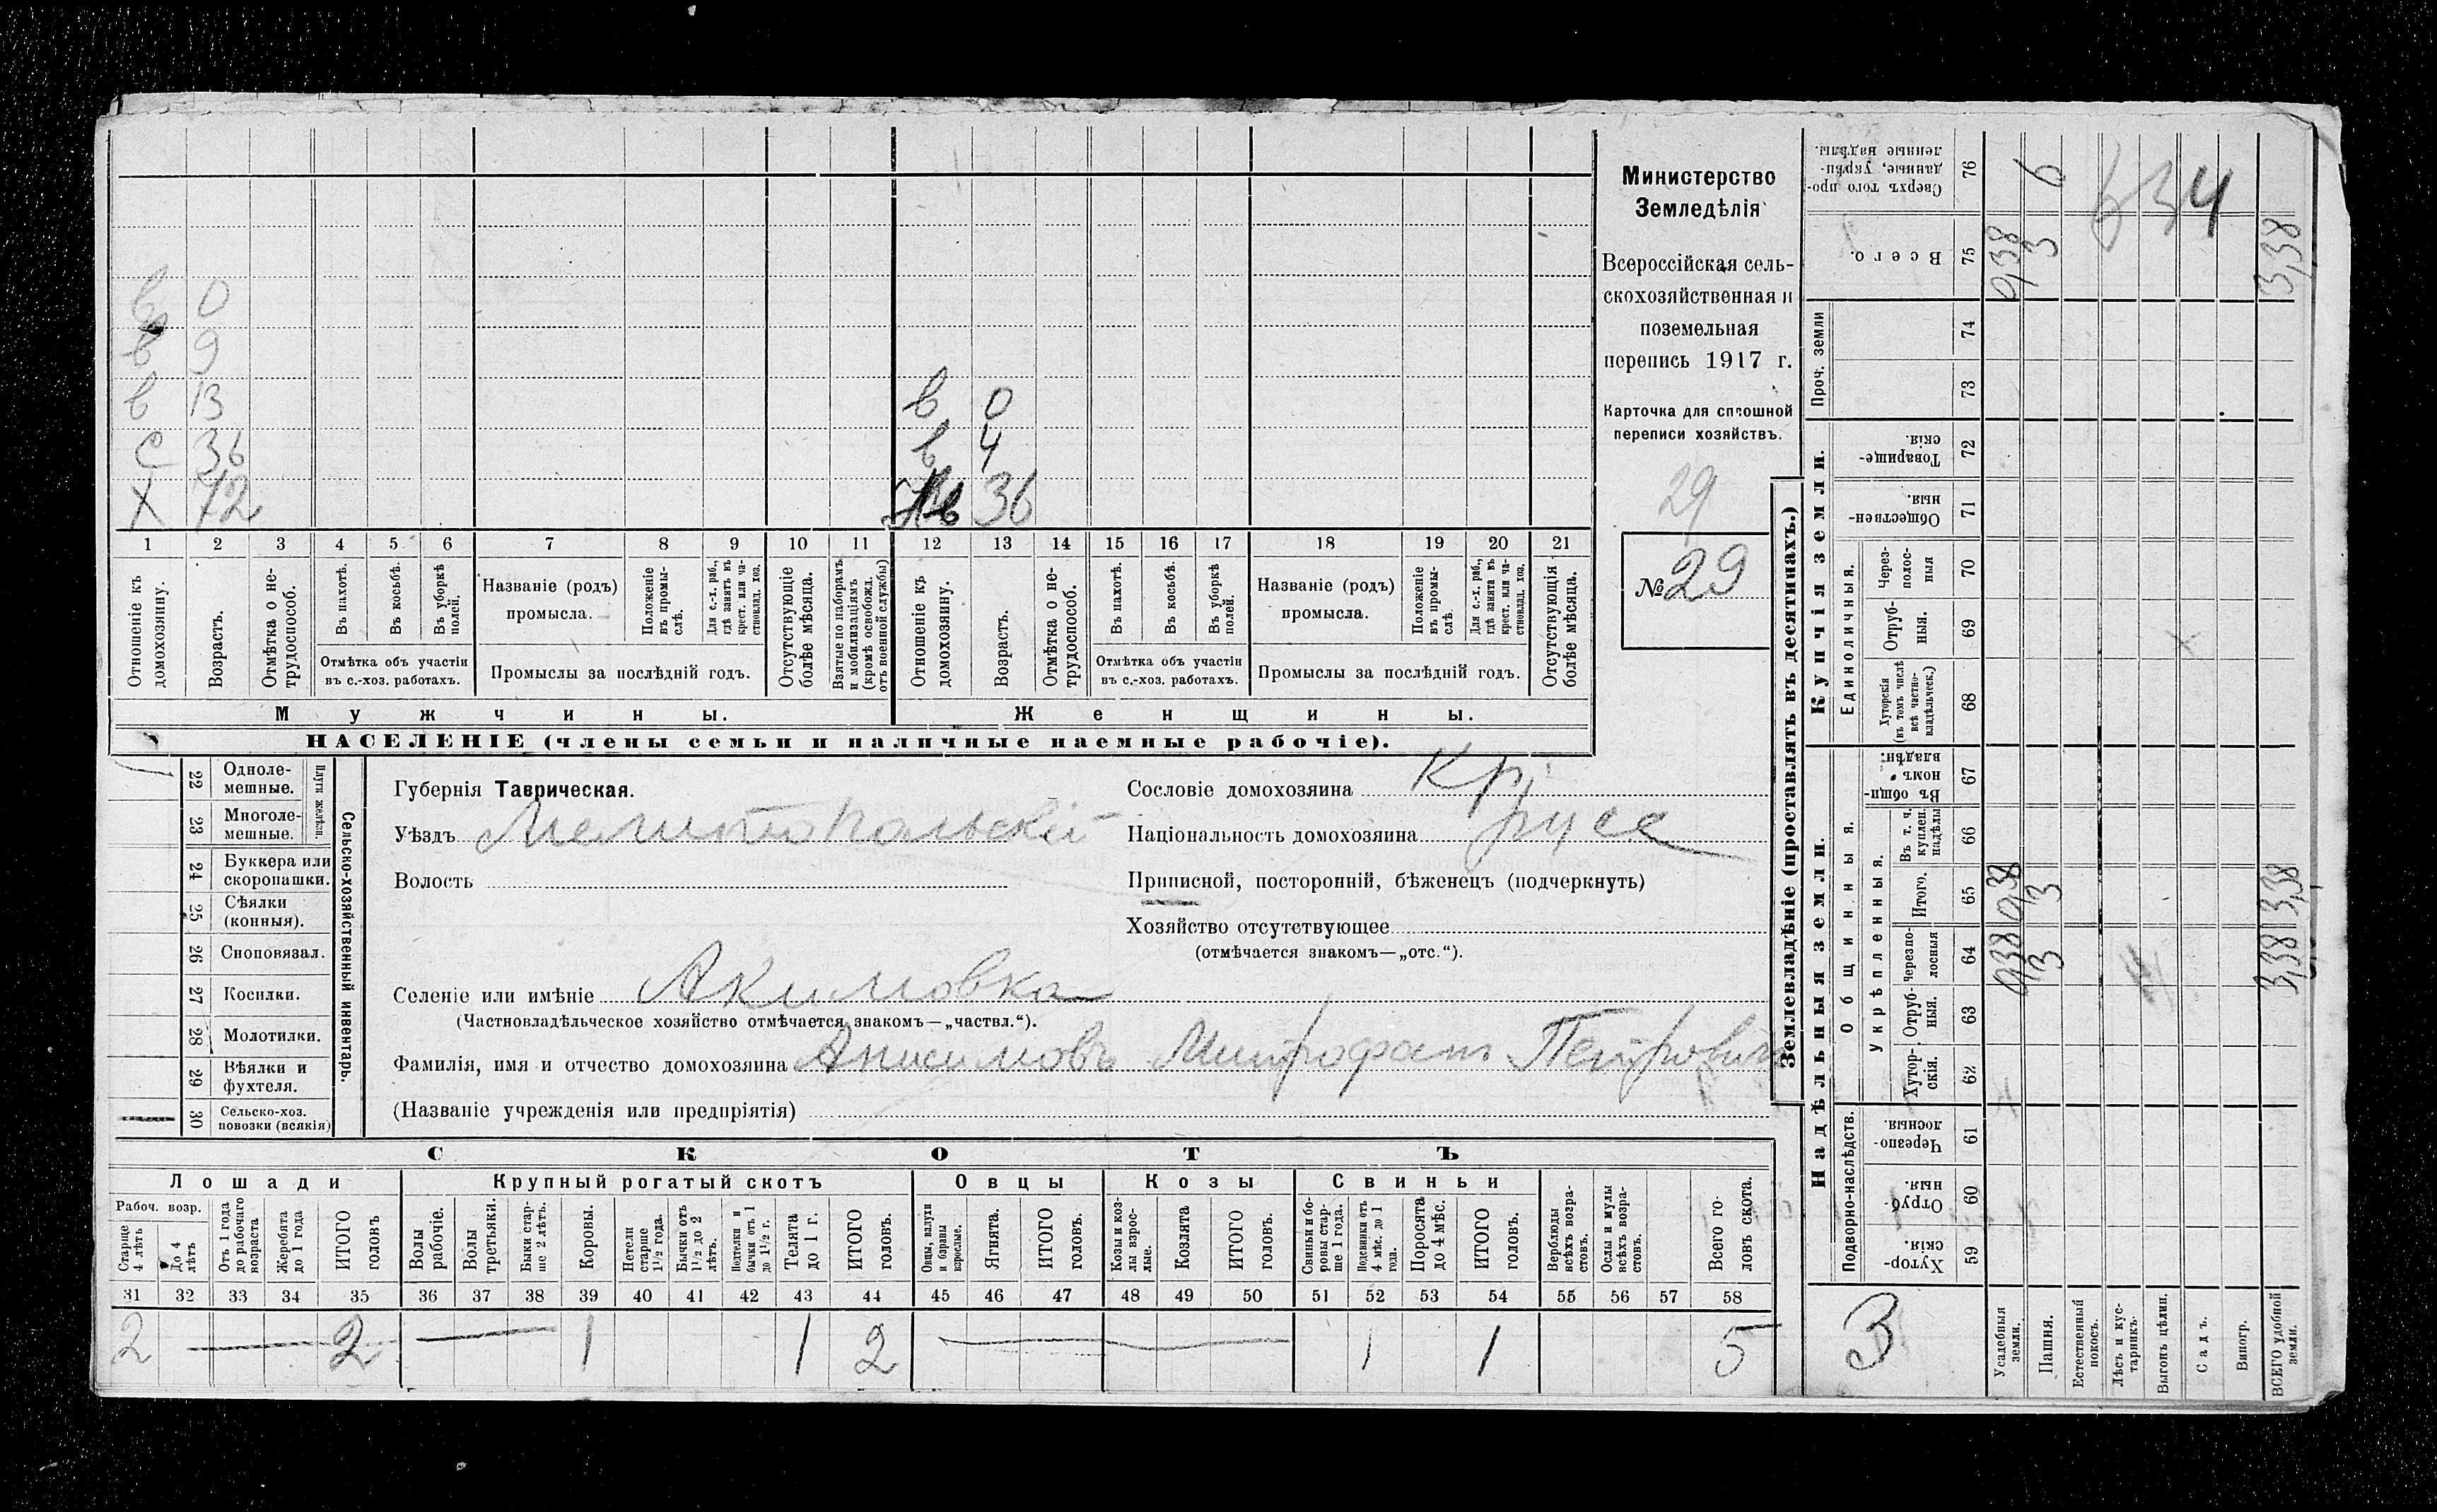 Министерство
Земледѣлія
Всероссійская сель-
скохозяйственная и
поземельная
перепись 1917 г.
Карточка для сплошной
переписи хозяйствъ.
29
№ 29
в 0
в 9
в 13
с 36
х 72
в 0
в 4
36
1 2 3 4 5 6 7 8 9 10 11 12 13 14 15 16 17 18 19 20 21
Отношеніе къ домохозяину.
Возрастъ.
Отмѣтка о не-трудоспособ.
Въ пахотѣ.
Въ косьбѣ.
Въ уборкѣ полей.
Отмѣтка объ участіи въ с.-хоз. работахъ.
Названіе (родъ) промысла.
Положеніе въ промы-слѣ.
Для с.-х. раб., гдѣ занятъ въ крест. или ча-стновлад. хоз.
Промыслы за послѣдній годъ.
Отсутствующіе болѣе мѣсяца.
Взятые по наборамъ и мобилизаціямъ (кромѣ освобожд. отъ военной службы)
Отношеніе къ домохозяину.
Возрастъ.
Отмѣтка о не-трудоспособ.
Въ пахотѣ.
Въ косьбѣ.
Въ уборкѣ полей.
Отмѣтка объ участіи въ с.-хоз. работахъ.
Названіе (родъ) промысла.
Положеніе въ промы-слѣ
Для с.-х. раб., гдѣ занятъ въ крест. или ча-стновлад. хоз.
Промыслы за послѣдній годъ.
Отсутствующія болѣе мѣсяца.
Мужчины.
Женщины.
НАСЕЛЕНІЕ (члены семьи и наличные наемные рабочіе).
Губернія Таврическая.
Уѣздъ Мелитопольскій
Волость
Селеніе или имѣніе Акимовка
(Частновладѣльческое хозяйство отмѣчается знакомъ—„частвл.“).
Фамилія, имя и отчество домохозяина Анисимовъ Митрофанъ Петровичъ
(Названіе учрежденія или предпріятія)
Сословіе домохозяина Кр.
Національность домохозяина русс
Приписной, посторонній, бѣженецъ (подчеркнуть)
Хозяйство отсутствующее
(отмѣчается знакомъ—„отс.“).
Сельско-хозяйственный инвентарь.
Плуги желѣзн.
22 Одноле-мешные. 1
23 Многоле-мешные.
24 Буккера или скоропашки.
25 Сѣялки (конныя).
26 Сноповязал.
27 Косилки.
28 Молотилки.
29 Вѣялки и фухтеля.
30 Сельско-хоз. повозки (всякія) —
СКОТЪ
Лошади
Крупный рогатый скотъ
Овцы
Козы
Свиньи
Рабоч. возр.
Старше 4 лѣтъ
До 4 лѣтъ
Отъ 1 года до рабочаго возраста
Жеребята до 1 года
ИТОГО головъ
Волы рабочіе.
Волы третьяки.
Быки стар-ше 2 лѣтъ.
Коровы.
Нетели старше 1½ года.
Бычки отъ 1½ до 2 лѣтъ.
Подтелки и бычки отъ 1 до 1½ г.
Телята до 1 г.
ИТОГО головъ.
Овцы, валухи и бараны взрослые.
Ягнята.
ИТОГО головъ.
Козы и коз-лы взрос-лые.
Козлята
ИТОГО головъ.
Свиньи и бо-ровы стар-ше 1 года.
Подсвинки отъ 4 мѣс. до 1 года.
Поросята до 4 мѣс.
ИТОГО головъ.
Верблюды всѣхъ возра-стовъ.
Ослы и мулы всѣхъ возра-стовъ.
Всего го-ловъ скота.
31 32 33 34 35 36 37 38 39 40 41 42 43 44 45 46 47 48 49 50 51 52 53 54 55 56 57 58
2 — 2 — 1 1 2 — 1 1 5
Землевладѣніе (проставлять въ десятинахъ.)
Надѣльныя земли.
Купчія земли.
Проч. земли
Подворно-наслѣдств.
Общинныя.
Укрѣпленныя.
Единоличныя.
Сверхъ того про-данные, укрѣп-ленные надѣлы. 76
Всего. 75
74
73
Товарище-скія. 72
Обществен-ныя. 71
Через-полос-ныя 70
Отруб-ныя. 69
Хуторскія (въ томъ числѣ всѣ частно-владѣльческ.) 68
Въ общи-номъ владѣн. 67
Въ т. ч. куплен. надѣлы 66
Итого. 65
Черезпо-лосныя 64
Отруб-ныя. 63
Хутор-скія. 62
Черезпо-лосныя. 61
Отруб-ныя. 60
Хутор-скія. 59
3
Усадебныя земли. 0,38 0,38 0,38
Пашня. 3 3 3 6
Естественный покосъ.
Лѣсъ и кус-тарникъ.
Выгонъ цѣлин.
Садъ.
Виногр.
ВСЕГО удобной земли. 3,38 3,38 3,38